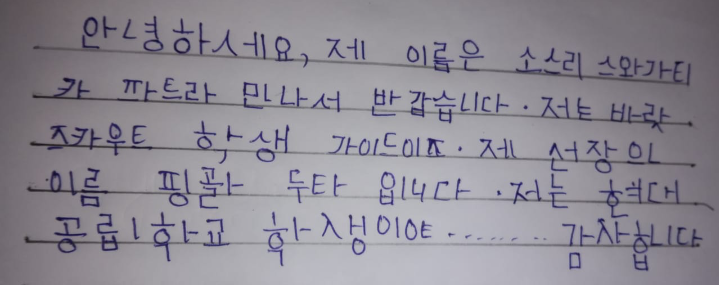 안녕하세요, 제 이름은 소스리 스와가티
카 파트라 만나서 반갑습니다. 저는 바랏
즈카우트 학생 가이드이죠. 제 선장 인
이름 핑퐐 두타 입니다. 저는 현
공립 학교 학생이야........ 감사합니다